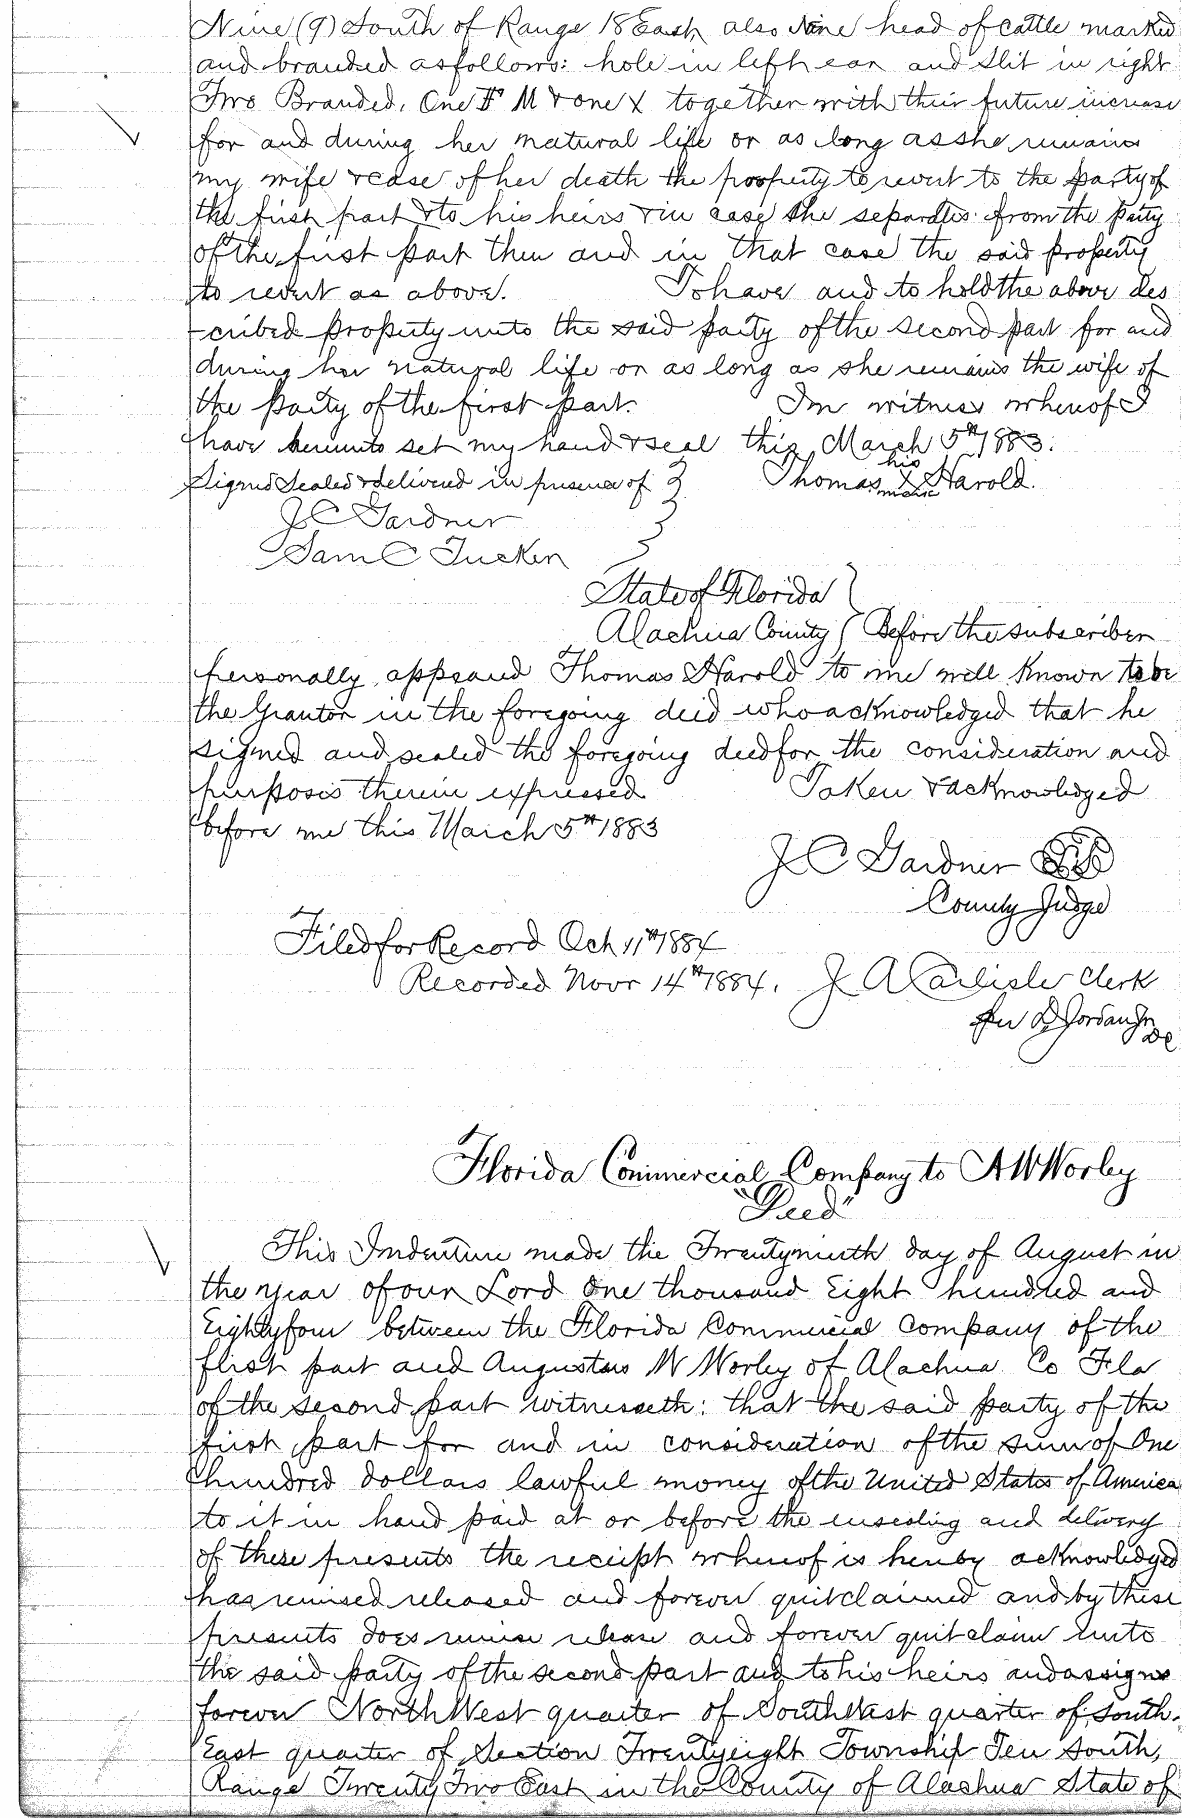 Nine (9) South of Range 18 East also Nine head of cattle marked
and branded as follows: hole in left ear and slit in right
Two Branded, One F M & one X together with their future increase
for and during her natural life or as long as she remains
my wife & case of her death the property to revert to the party of
the first part & to his heirs & in case she separates from the party
of the first part then and in that case the said property
to revert as above. To have and to hold the above des
-cribed property unto the said party of the second part for and
during her natural life or as long as she remains the wife of
the party of the first part. In witness whereof I
have hereunto set my hand & seal this March 5th 1883.
Signed Sealed & delivered in presence of } Thomas his X mark Harold.
J C Gardner
Sam C Tucker
State of Florida }
Alachua County } Before the subscriber
personally appeared Thomas Harold to me well known to be
the Grantor in the foregoing deed who acknowledged that he
signed and sealed the foregoing deed for the consideration and
purposes therein expressed Taken & acknowledged
before me this March 5th 1883
J C Gardner
County Judge
Filed for Record Oct 11th 1884
Recorded Novr 14th 1884. J A Carlisle Clerk
per D Jordan Jr
DC
Florida Commercial Company to A W Worley
"Deed"
This Indenture made the Twentyninth day of August in
the year of our Lord One thousand Eight hundred and
Eightyfour between the Florida Commercial Company of the
first part and Augustus W Worley of Alachua Co Fla
of the second part witnesseth: that the said party of the
first part for and in consideration of the sum of One
hundred dollars lawful money of the United States of America
to it in hand paid at or before the ensealing and delivery
of these presents the receipt whereof is hereby acknowledged
has remised released and forever quitclaimed and by these
presents does remise release and forever quitclaim unto
the said party of the second part and to his heirs and assigns
forever NorthWest quarter of SouthWest quarter of South-
East quarter of Section Twentyeight Township Ten South,
Range Twenty Two East in the County of Alachua State of